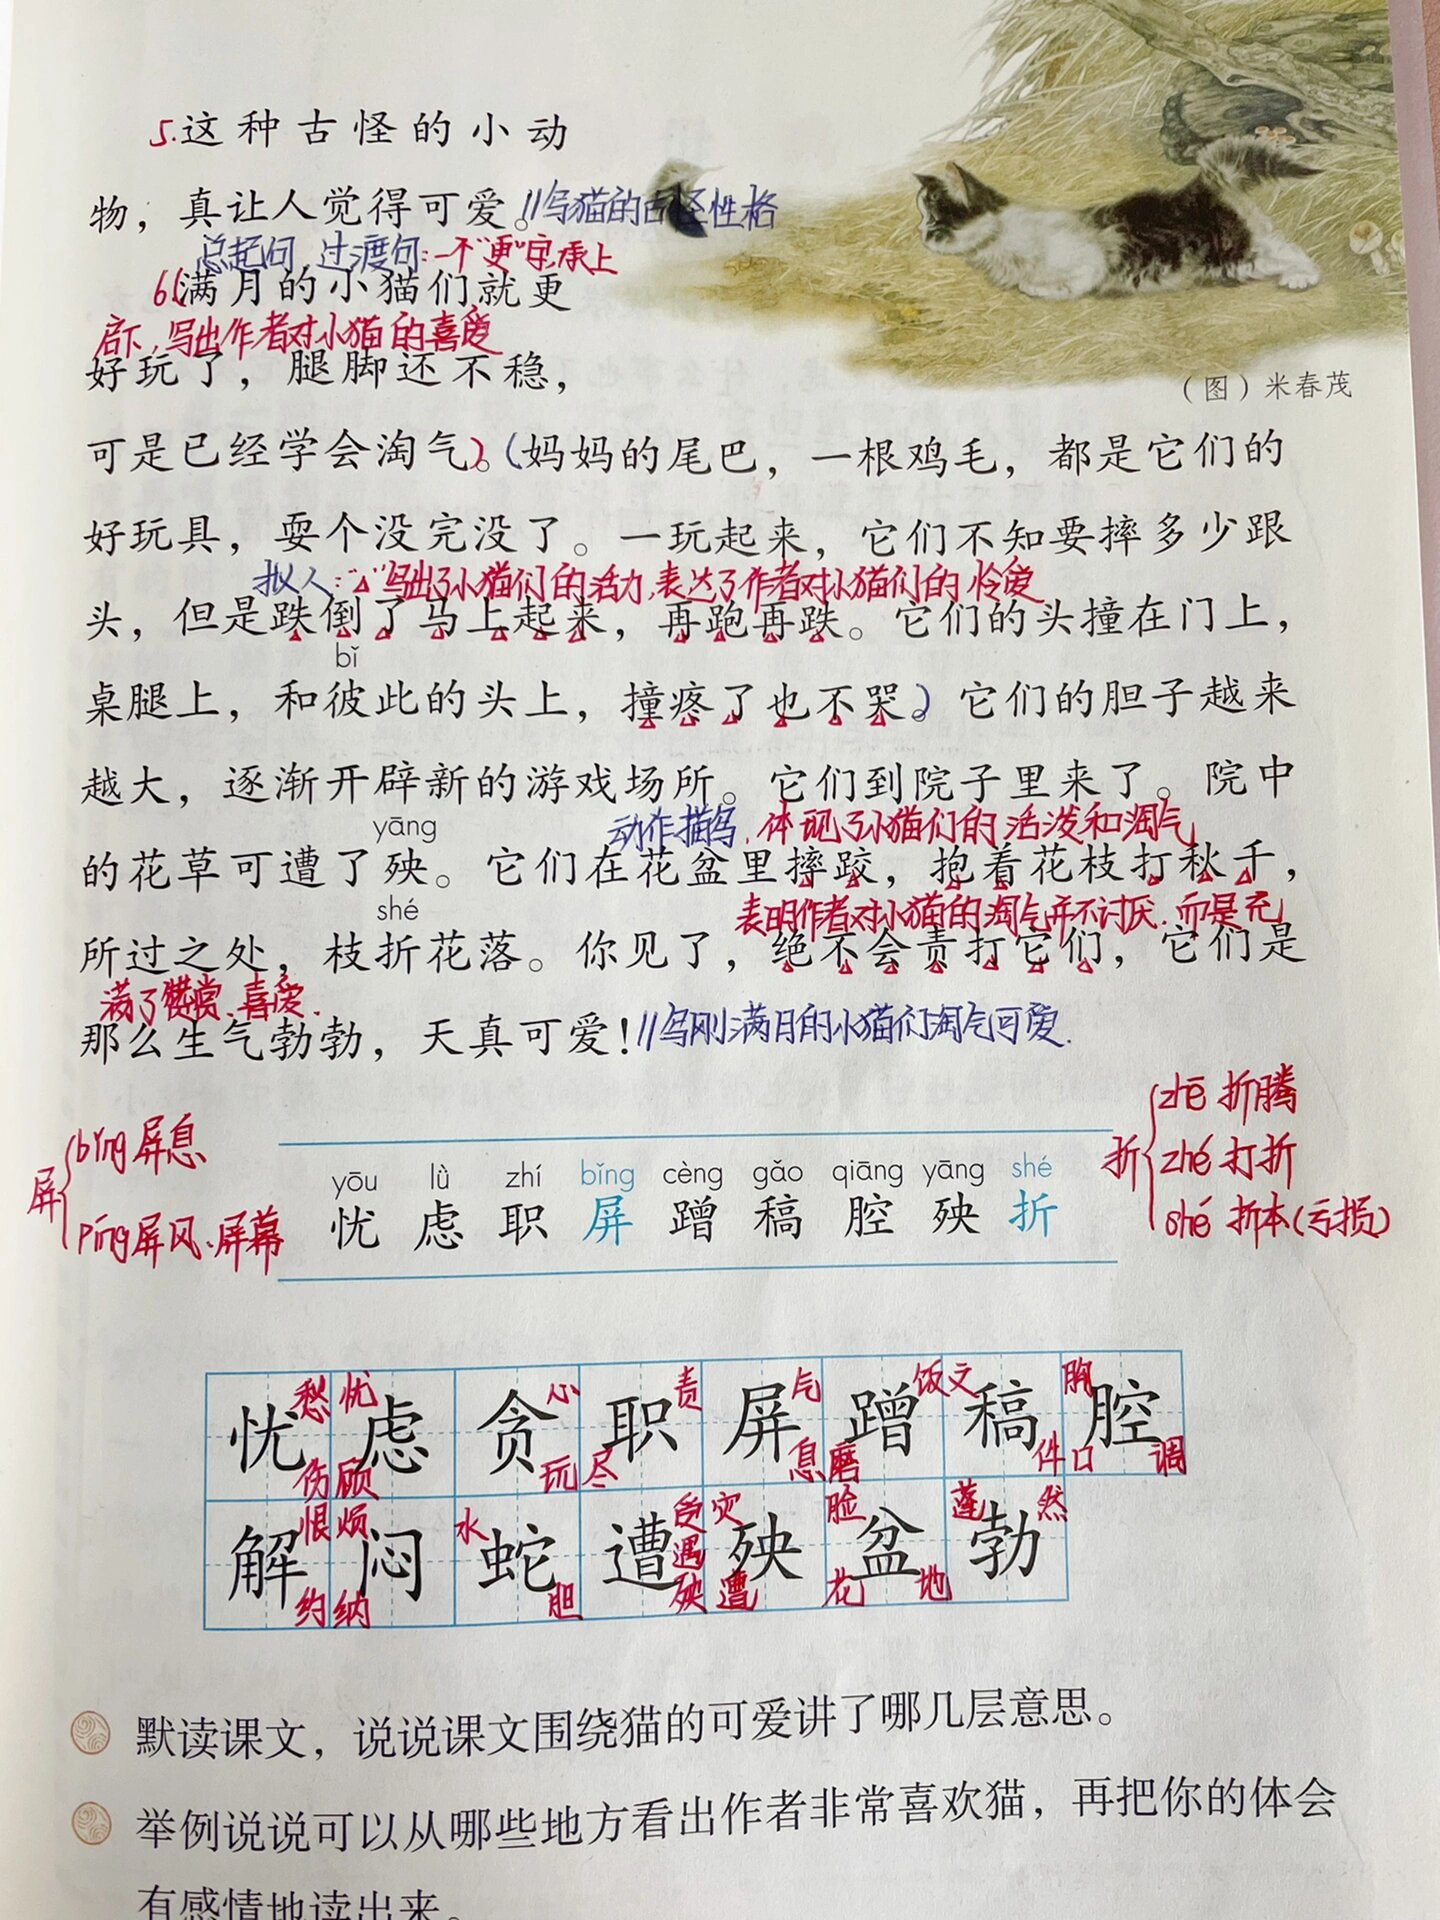 5.这种古怪的小动
物，真让人觉得可爱。//写猫的古怪性格
总起句，过渡句：一个“更”字，承上
6.(满月的小猫们就更
启下，写出作者对小猫的喜爱
好玩了，腿脚还不稳，
（图）米春茂
可是已经学会淘气)。(妈妈的尾巴，一根鸡毛，都是它们的
好玩具，耍个没完没了。一玩起来，它们不知要摔多少跟
拟人：“△”写出了小猫们的活力，表达了作者对小猫们的怜爱
头，但是跌倒了马上起来，再跑再跌。它们的头撞在门上，
bǐ
桌腿上，和彼此的头上，撞疼了也不哭。)它们的胆子越来
越大，逐渐开辟新的游戏场所。它们到院子里来了。院中
yāng
动作描写，体现了小猫们的活泼和淘气
的花草可遭了殃。它们在花盆里摔跤，抱着花枝打秋千，
shé
表明作者对小猫的淘气并不讨厌，而是充
所过之处，枝折花落。你见了，绝不会责打它们，它们是
满了赞赏、喜爱.
那么生气勃勃，天真可爱！//写刚满月的小猫们淘气可爱.
屏
bǐng 屏息
píng 屏风、屏幕
yōu lǜ zhí bǐng cèng gǎo qiāng yāng shé
忧 虑 职 屏 蹭 稿 腔 殃 折
折
zhē 折腾
zhé 打折
shé 折本(亏损)
愁 忧 心 责 气 饭 文 胸
忧 虑 贪 职 屏 蹭 稿 腔
伤 顾 玩 尽 息 磨 件 口 调
恨 烦 水 受 灾 脸 蓬 然
解 闷 蛇 遭 殃 盆 勃
遇
约 纳 胆 殃 遭 花 地
默读课文，说说课文围绕猫的可爱讲了哪几层意思。
举例说说可以从哪些地方看出作者非常喜欢猫，再把你的体会
有感情地读出来。